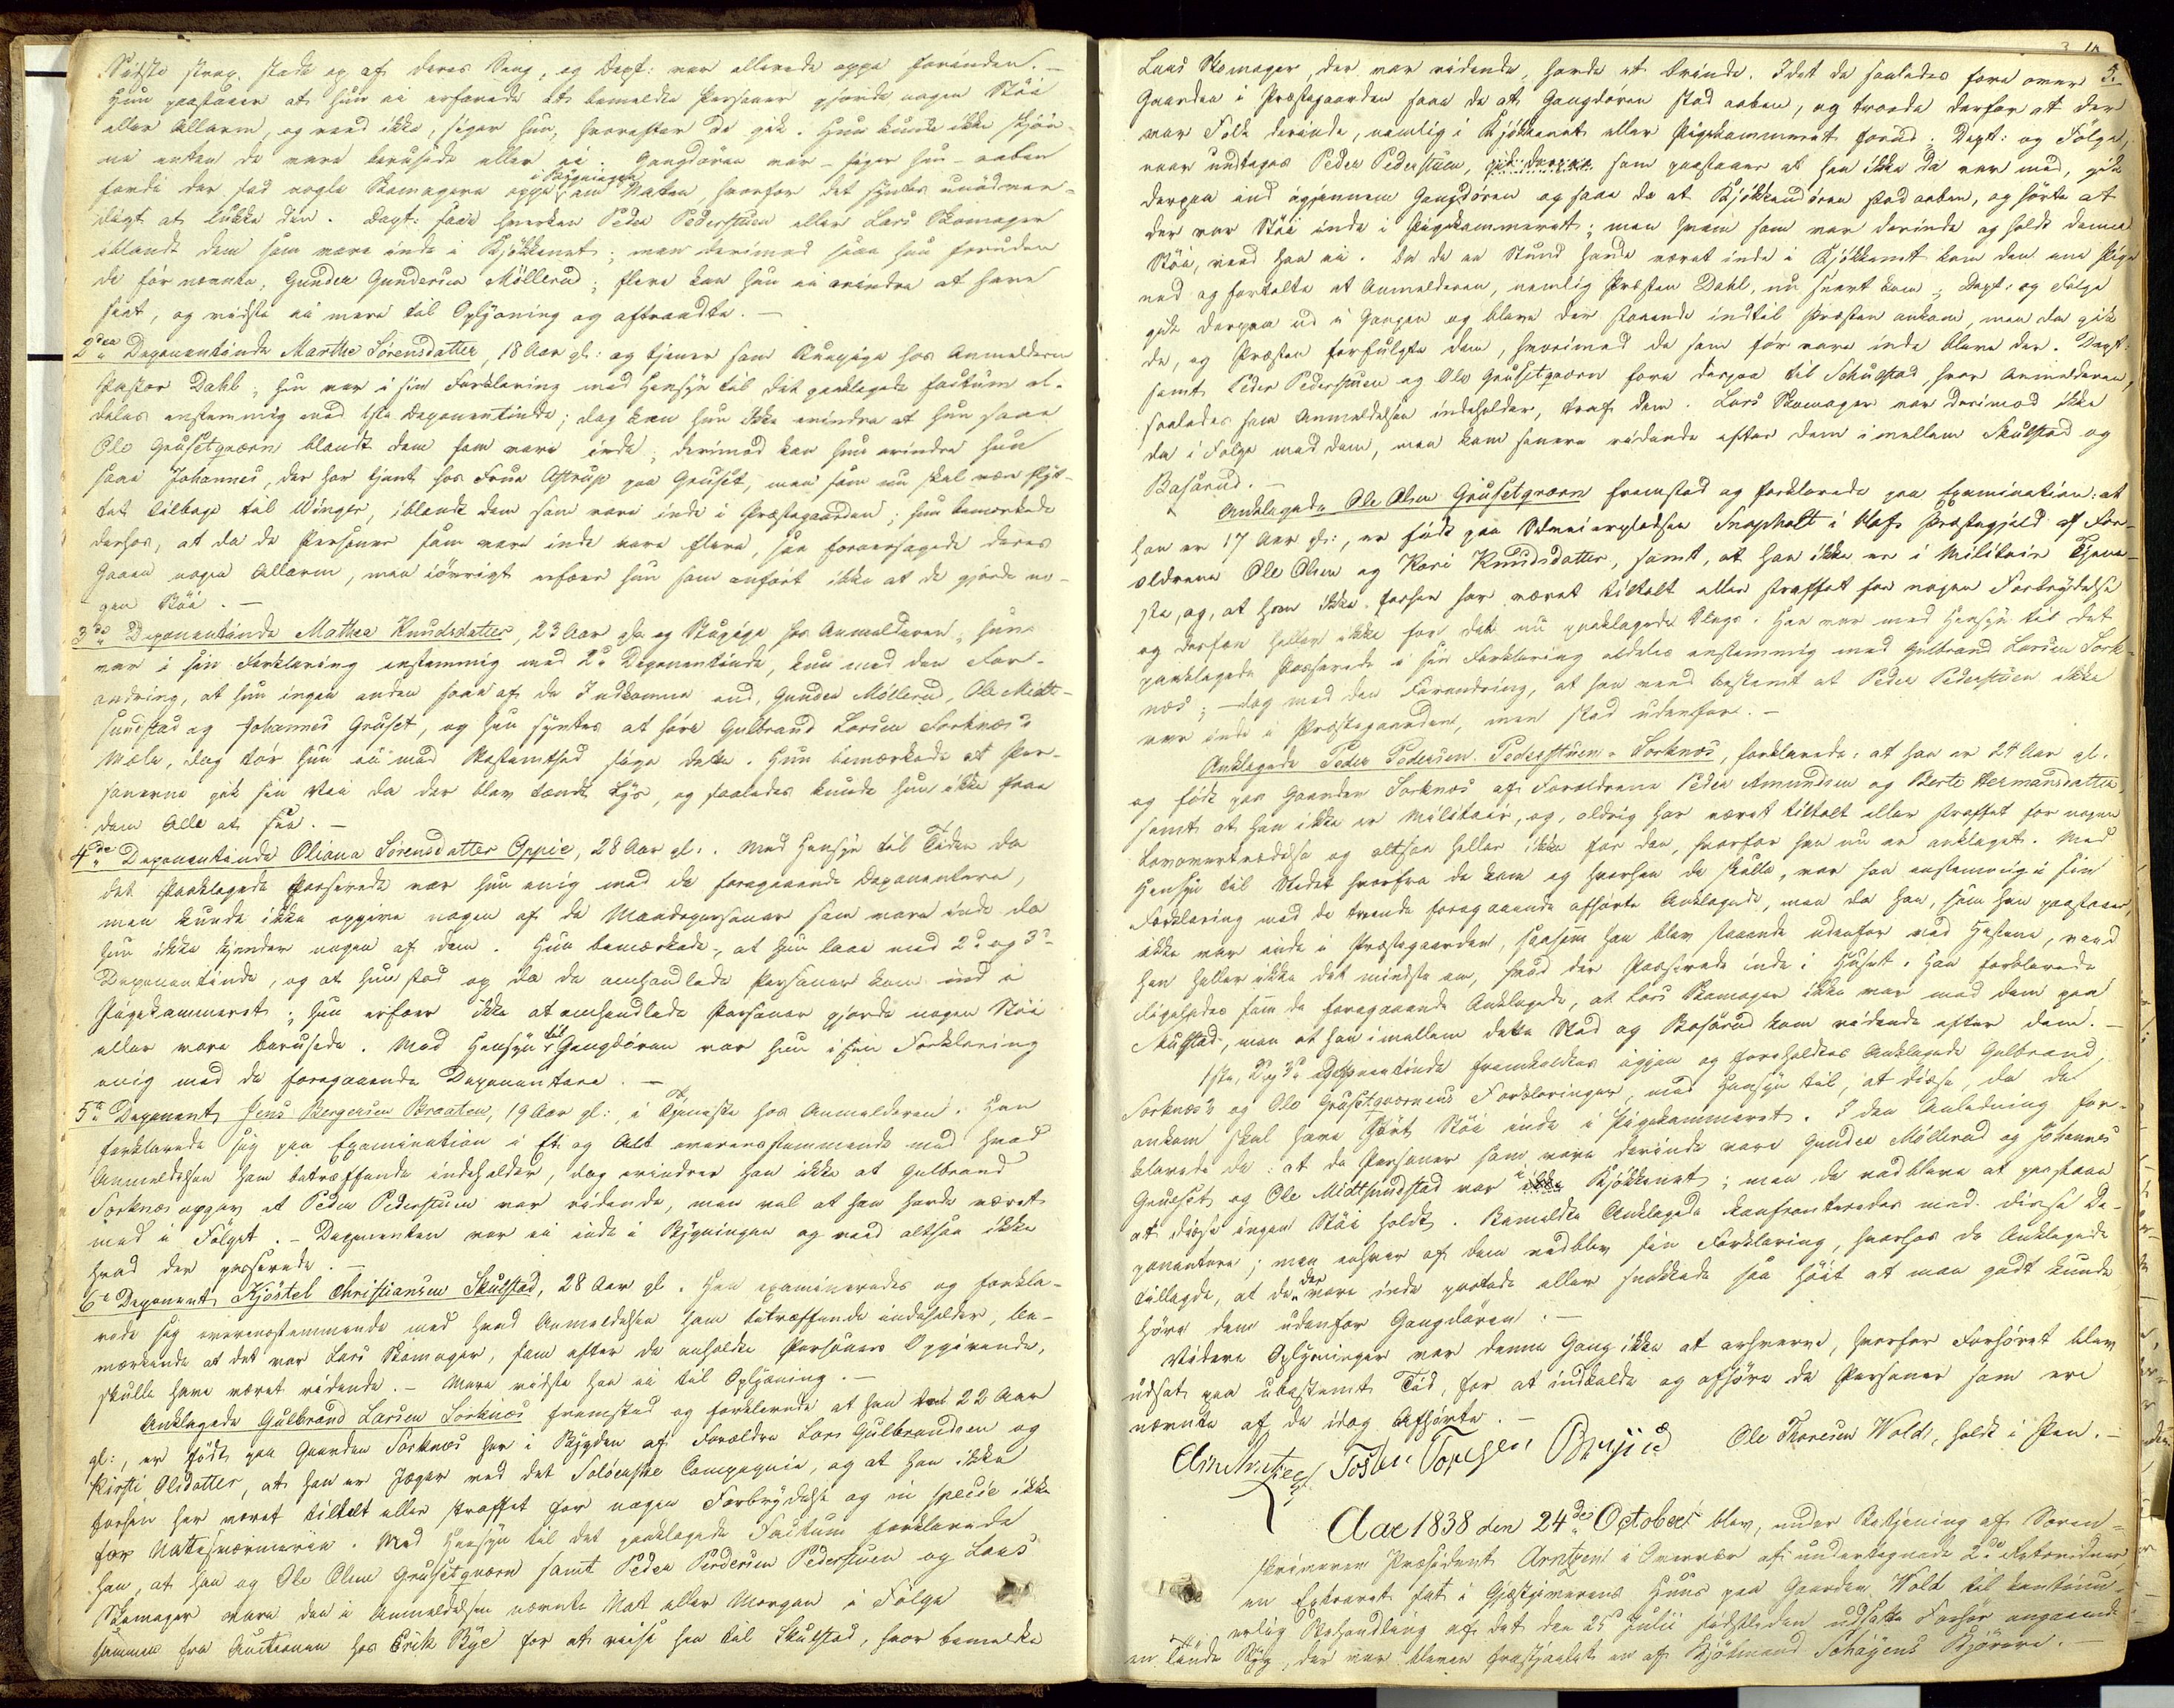 Sidste strax stode op af deres Seng, og Dept: var allerede oppe forinden. —
Hun paastaaer at hun ei erfarede at bemeldte Personer gjorde nogen Støi
eller Allarm, og veed ikke, siger hun, hvorefter de gik. Hun kunde ikke skjøn-
ne enten de vare berusede eller ei. Gangdøren var – siger hun – aaben
fordi der sad nogle Skomagere oppe i Bygningen om Natten hvorfor det syntes unødven-
digt at lukke den. Dept: saae hverken Peder Pederstuen eller Lars Skomager
iblandt dem som vare inde i Kjøkkenet; men derimod saae hun foruden
de før nævnte, Gunder Gundersen Möllerud; flere kan hun ei erindre at have
seet, og vidste ei mere til Oplysning og aftraadte. —
2den Deponentinde Marthe Sörensdatter, 18 Aar gl: og tjener som Kuepige hos Anmelderen
Pastor Dahl; hun var i sin Forklaring med Hensyn til det paaklagede factum al-
deles enstemmig med 1ste Deponentinde; dog kan hun ikke erindre at hun saae
Ole Grusetqværn blandt dem som vare inde; derimod kan hun erindre hun
saae Johannes, der har tjent hos Frue Astrup paa Gruset, men som nu skal være flyt-
tet tilbage til Winger, iblandt dem som vare inde i Præstegaarden; hun bemærkede
derhos, at da de Personer som vare inde vare flere, saa foraarsagede deres
Gaaen nogen Allarm, men iøvrigt erfoer hun som anført ikke at de gjorde no-
gen Støi. —
3de Deponentinde Mathea Knudsdatter, 23 Aar gl: og Stuepige hos Anmelderen; hun
var i sin Forklaring enstemmig med 2d Deponentinde, kun med den For-
andring, at hun ingen anden saae af de Indkomne end, Gunder Möllerud, Ole Midt-
sundstad og Johannes Gruset, og hun syntes at høre Gulbrand Larsen Sorknæs's
Mæle, dog tør hun ei med Bestemthed sige dette. Hun bemærkede at Per-
sonerne gik sin Vei da der blev tændt Lys, og saaledes kunde hun ikke faae
dem Alle at see. —
4de Deponentinde Oliana Sörensdatter Oppie, 28 Aar gl:. Med Hensyn til Tiden da
det Paaklagede passerede var hun enig med de foregaaende Deponentere,
men kunde ikke opgive nogen af de Mandspersoner som vare inde da
hun ikke kjender nogen af dem. Hun bemærkede, at hun laae med 2d og 3d
Deponentinde, og at hun stod op da de omhandlede Personer kom ind i
Pigekammeret; hun erfoer ikke at omhandlede Personer gjorde nogen Støi
eller vare berusede. Med Hensyn til Gangdøren var hun i sin Forklaring
enig med de foregaaende Deponentere. —
5te Deponent Jens Bergersen Braaten, 19 Aar gl: i Tjeneste hos Anmelderen. Han
forklarede sig paa Examination i Et og Alt overensstemmende med hvad
Anmeldelsen ham betræffende indeholder, dog erindrer han ikke at Gulbrand
Sorknæs opgav at Peder Pederstuen var ridende, men vel at han havde været
med i Følget. – Deponenten var ei inde i Bygningen og veed altsaa ikke
hvad der passerede. —
6te Deponent Kjöstel Christiansen Skulstad, 28 Aar gl. Han examineredes og forkla-
rede sig overensstemmende med hvad Anmeldelsen ham betræffende indeholder, be-
mærkende at det var Lars Skomager, som efter de anholdte Personers Opgivende,
skulle have været ridende. – Mere vidste han ei til Oplysning. —
Anklagede Gulbrand Larsen Sorknæs fremstod og forklarede at han er 22 Aar
gl:, er født paa Gaarden Sorknæs her i Bygden af Forældre Lars Gulbrandsen og
Kirsti Olsdatter, at han er Jæger ved det Solöerske Compagnie, og at han ikke
forhen har været tiltalt eller straffet for nogen Forbrydelse og in specie ikke
for Natesværmerie. Med Hensyn til det paaklagede Factum forklarede
han, at han og Ole Olsen Grusetqværn samt Peder Pedersen Pederstuen og Lars
Skomager vare den i Anmeldelsen nævnte Nat eller Morgen i Følge
sammen fra Auctionen hos Erik Rye for at reise hen til Skulstad, hvor bemeldte
3.
Lars Skomager, der var ridende, havde et Ærinde. Idet de saaledes fore over
Gaarden i Præstegaarden saae de at Gangdøren stod aaben, og troede derfor at der
var Folk derinde, nemlig i Kjøkkenet eller Pigekammeret forud; Dept: og Følge,
naar undtages Peder Pederstuen, som paastaaer at han ikke da var med, gik
derpaa ind igjennem Gangdøren og saae da at Kjøkkendøren stod aaben, og hørte at
der var Støi inde i Pigekammeret; men hvem som var derinde og holdt denne
Støi, veed han ei. Da de en Stund havde været inde i Kjøkkenet kom den ene Pige
ned og fortalte at Anmelderen, nemlig Præsten Dahl, nu snart kom; Dept: og Følge
gik derpaa ud i Gangen og bleve der staaende indtil Præsten ankom, men da gik
de, og Præsten forfulgte dem, hvorimod de som før vare inde bleve der. Dept:
samt Peder Pederstuen og Ole Grusetqværn fore derpaa til Schulstad, hvor Anmelderen,
saaledes som Anmeldelsen indeholder, traf dem. Lars Skomager var derimod ikke
da i Følge med dem, men kom senere ridende efter dem imellem Skulstad og
Basærud. —
Anklagede Ole Olsen Grusetqværn fremstod og forklarede paa Examination: at
han er 17 Aar gl:, er født paa Udeneierpladsen Snapholt i Hofs Præstegjeld af For-
ældrene Ole Olsen og Kari Knudsdatter, samt, at han ikke er i Militair Tjene-
ste, og, at han ikke forhen har været tiltalt eller straffet for nogen Forbrydelse
og derfor heller ikke for det nu paaklagede Slags. Han var med Hensyn til det
paaklagede Passerede i sin Forklaring aldeles enstemmig med Gulbrand Larsen Sork-
næs; – dog med den Forandring, at han veed bestemt at Peder Pederstuen ikke
var inde i Præstegaarden, men stod udenfor. —
Anklagede Peder Pedersen Pederstuen – Sorknæs, forklarede: at han er 24 Aar gl.
og født paa Gaarden Sorknæs af Forældrene Peder Amundsen og Berte Hermansdatter,
samt at han ikke er Militair, og, aldrig har været tiltalt eller straffet for nogen
Lovovertrædelse og altsaa heller ikke for den, hvorfor han nu er anklaget. Med
Hensyn til Stedet hvorfra de kom og hvorhen de skulle, var han enstemmig i sin
Forklaring med de tvende foregaaende afhørte Anklagede, men da han, som han paastaaer,
ikke var inde i Præstegaarden, saasom han blev staaende udenfor ved Hestene, veed
han heller ikke det mindste om, hvad der Passerede inde i Huset. Han forklarede
ligeledes som de foregaaende Anklagede, at Lars Skomager ikke var med dem paa
Skulstad, men at han imellem dette Sted og Basærud kom ridende efter dem. —
1ste, 2d og 3d Deponentinde fremkaldtes igjen og foreholdtes Anklagede Gulbrand
Sorknæs's og Ole Grusetqværnens Forklaringer, med Hensyn til, at disse, da de
ankom skal have hørt Støi inde i Pigekammeret. I den Anledning for-
klarede de: at de Personer som vare derinde vare Gunder Möllerud og Johannes
Grueset og Ole Midtsundstad var i Kjøkkenet; men de vedbleve at paastaae
at disse ingen Støi holdt. Bemeldte Anklagede konfronteredes med disse De-
ponentere; men enhver af dem vedblev sin Forklaring, hvorhos de Anklagede
tillagde, at de der vare inde pratede eller snakkede saa høit at man godt kunde
høre dem udenfor Gangdøren. —
Videre Oplysninger var denne Gang ikke at erhverve, hvorfor Forhøret blev
udsat paa ubestemt Tid, for at indkalde og afhøre de Personer som ere
nævnte af de idag Afhørte. —
Arntzen Tosten Torgersen Ole Thoresen Wold, holdt i Pen. —
Aar 1838 den 24de October blev, under Betjening af Soren-
skriveren Præsident Arntzen i Overvær af undertegnede 2de Retsvidner
en Extraret sat i Gjæstgiverens Huus paa Gaarden Wold til kontinu-
erlig Behandling af det den 25d Julii sidstleden udsatte Forhør angaaende
en linde Ryg, der var bleven frastjaalet en af Kjøbmand Schöyens Kjørere. —